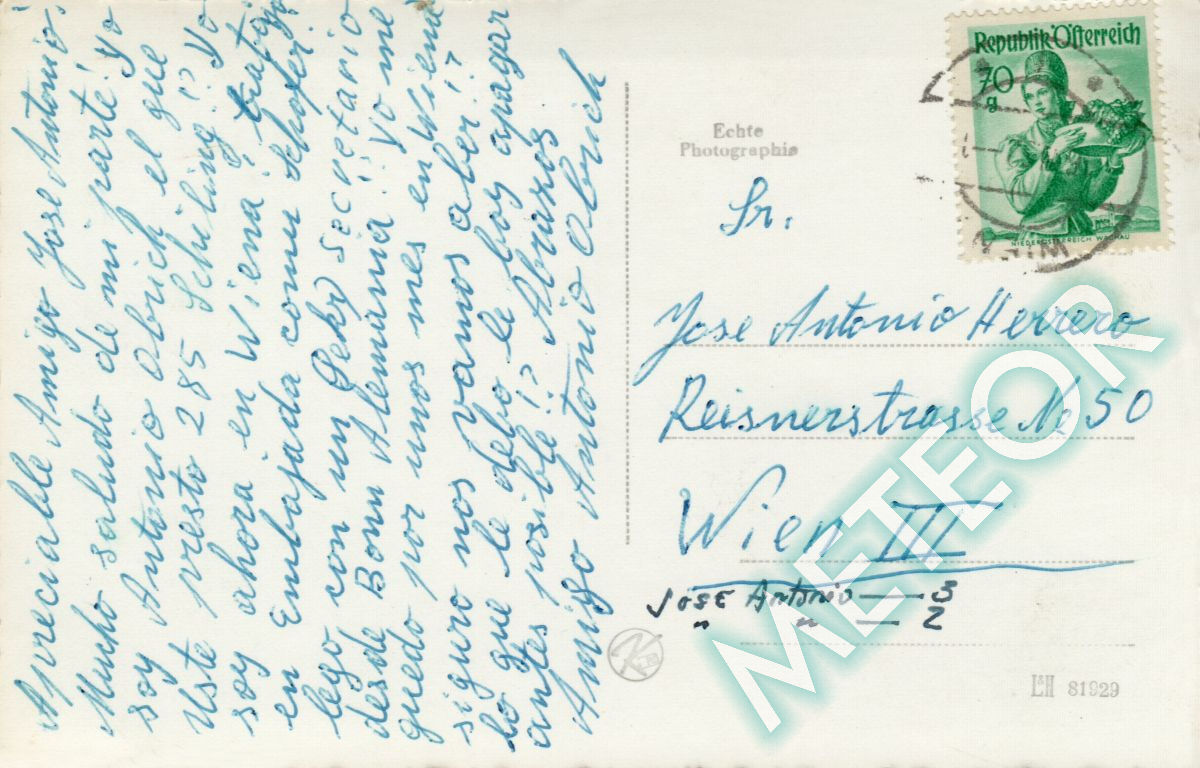 Apreciable Amigo Jose Antonio!
Muncho saludo de mi parte! Yo
soy Antonio Obrich el que
Uste presto 285 Schiling!? Yo
soy ahora en Wiena! trabajo
en Embajada comu schofer!
lego con un Geky secretario
desde Bonn Alemania!! Yo me
quedo por unos mes en Wiena
siguro nos vamos aber!?
lo que le debo le boy apagar
antes posible!? Abrazos
Amigo Antonio Obrich
Echte
Photographie
Republik Österreich
70
g
NIEDERÖSTERREICH WACHAU
WIEN
Sr.
Jose Antonio Herrero
Reisnerstrasse No 50
Wien III
JOSE Antonio — 3
" " — 2
K
L&H 81929
METEOR